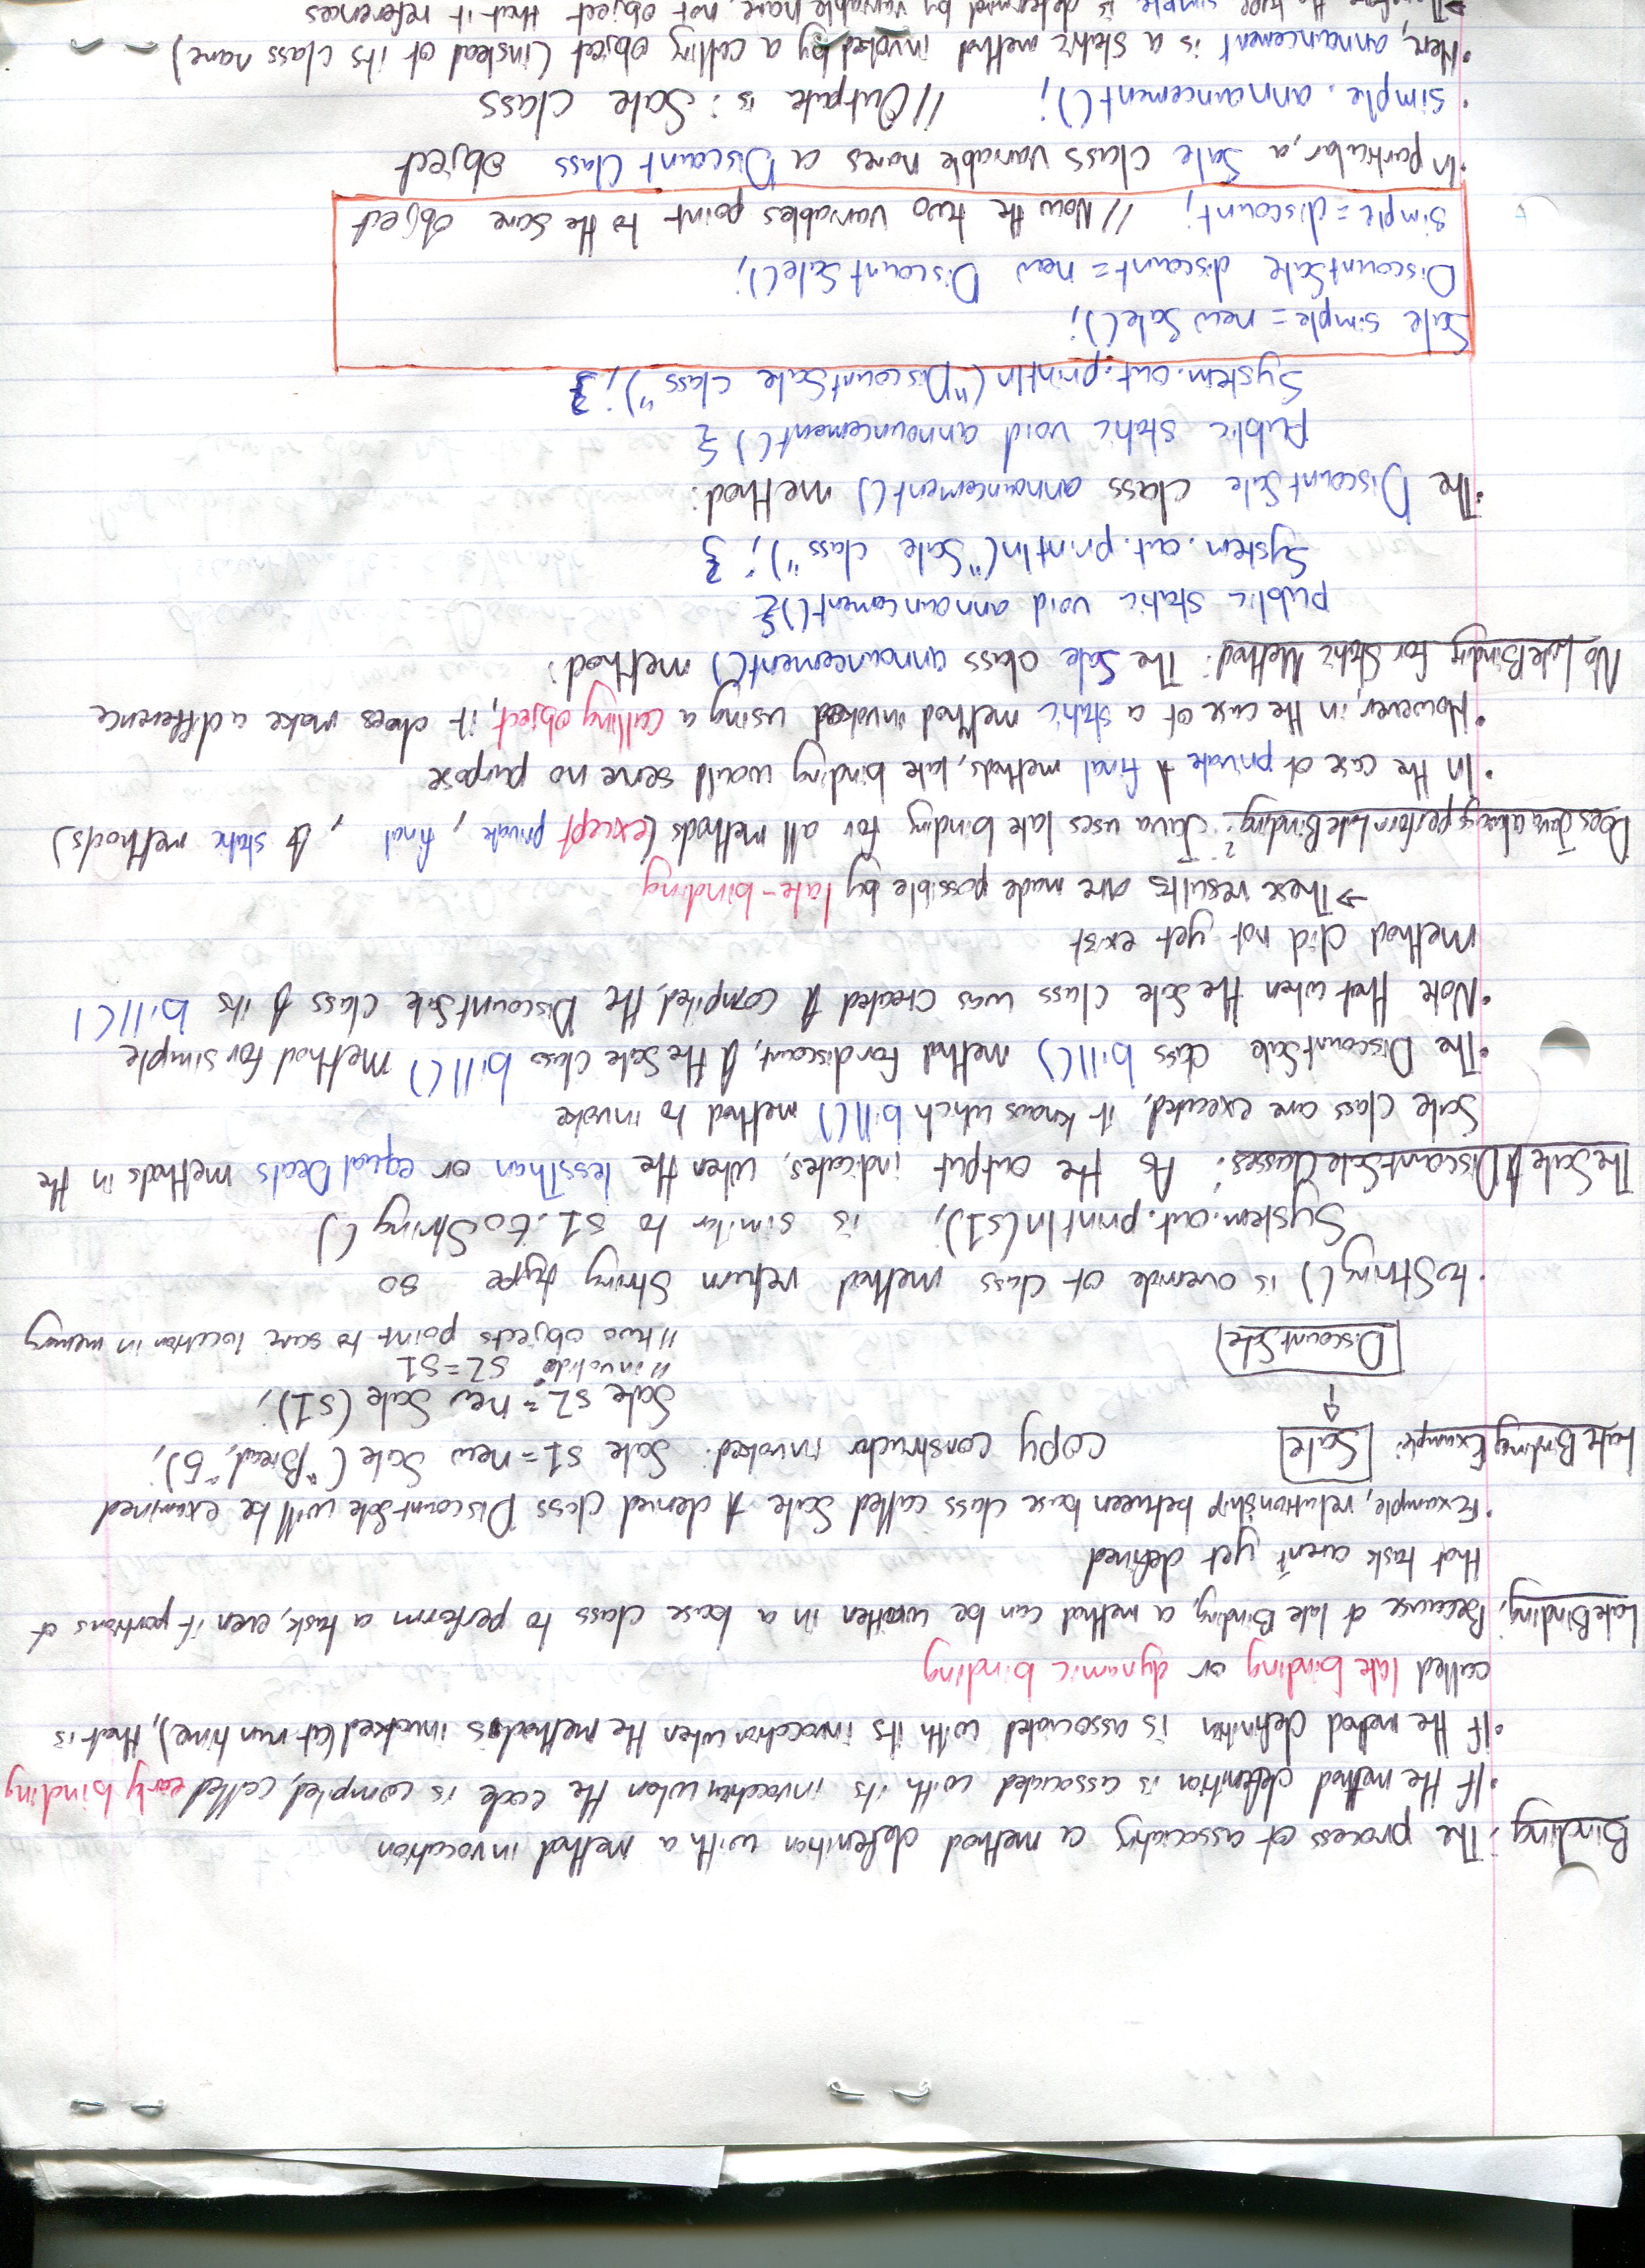 Binding: The process of associating a method definition with a method invocation
• If the method definition is associated with its invocation when the code is compiled, called early binding
• If the method definition is associated with its invocation when the method is invoked (at run time), that is
called late binding or dynamic binding
Late Binding: Because of late Binding, a method can be written in a base class to perform a task, even if portions of
that task aren't yet defined
• Example, relationship between base class called Sale & derived class DiscountSale will be examined
Late Binding Example: Sale copy constructor invoked: Sale s1 = new Sale ("Bread", 5);
Sale s2 = new Sale (s1);
// invalid: s2 = s1
DiscountSale // two objects point to same location in memory
• toString() is override of class method return String type so
System.out.println(s1); is similar to s1.toString()
The Sale & DiscountSale Classes: As the output indicates, when the lessThan or equalDeals methods in the
Sale class are executed, it knows which bill() method to invoke
• The DiscountSale class bill() method for discount, & the Sale class bill() method for simple
• Note that when the Sale class was created & compiled, the DiscountSale class & its bill()
method did not yet exist
→ These results are made possible by late-binding
Does Java always perform late Binding?: Java uses late binding for all methods (except private, final, & static methods)
• In the case of private & final methods, late binding would serve no purpose
• However, in the case of a static method invoked using a calling object, it does make a difference
No Late Binding for Static Method: The Sale class announcement() method:
public static void announcement(){
System.out.println("Sale class"); }
• The DiscountSale class announcement() method:
public static void announcement() {
System.out.println("DiscountSale class"); }
Sale simple = new Sale();
DiscountSale discount = new DiscountSale();
simple = discount; // Now the two variables point to the same object
• In particular, a Sale class variable names a Discount Class object
• simple.announcement(); // Output is: Sale class
• Here, announcement is a static method invoked by a calling object (instead of its class name)
→ Therefore the type simple is determined by variable name, not object that it references